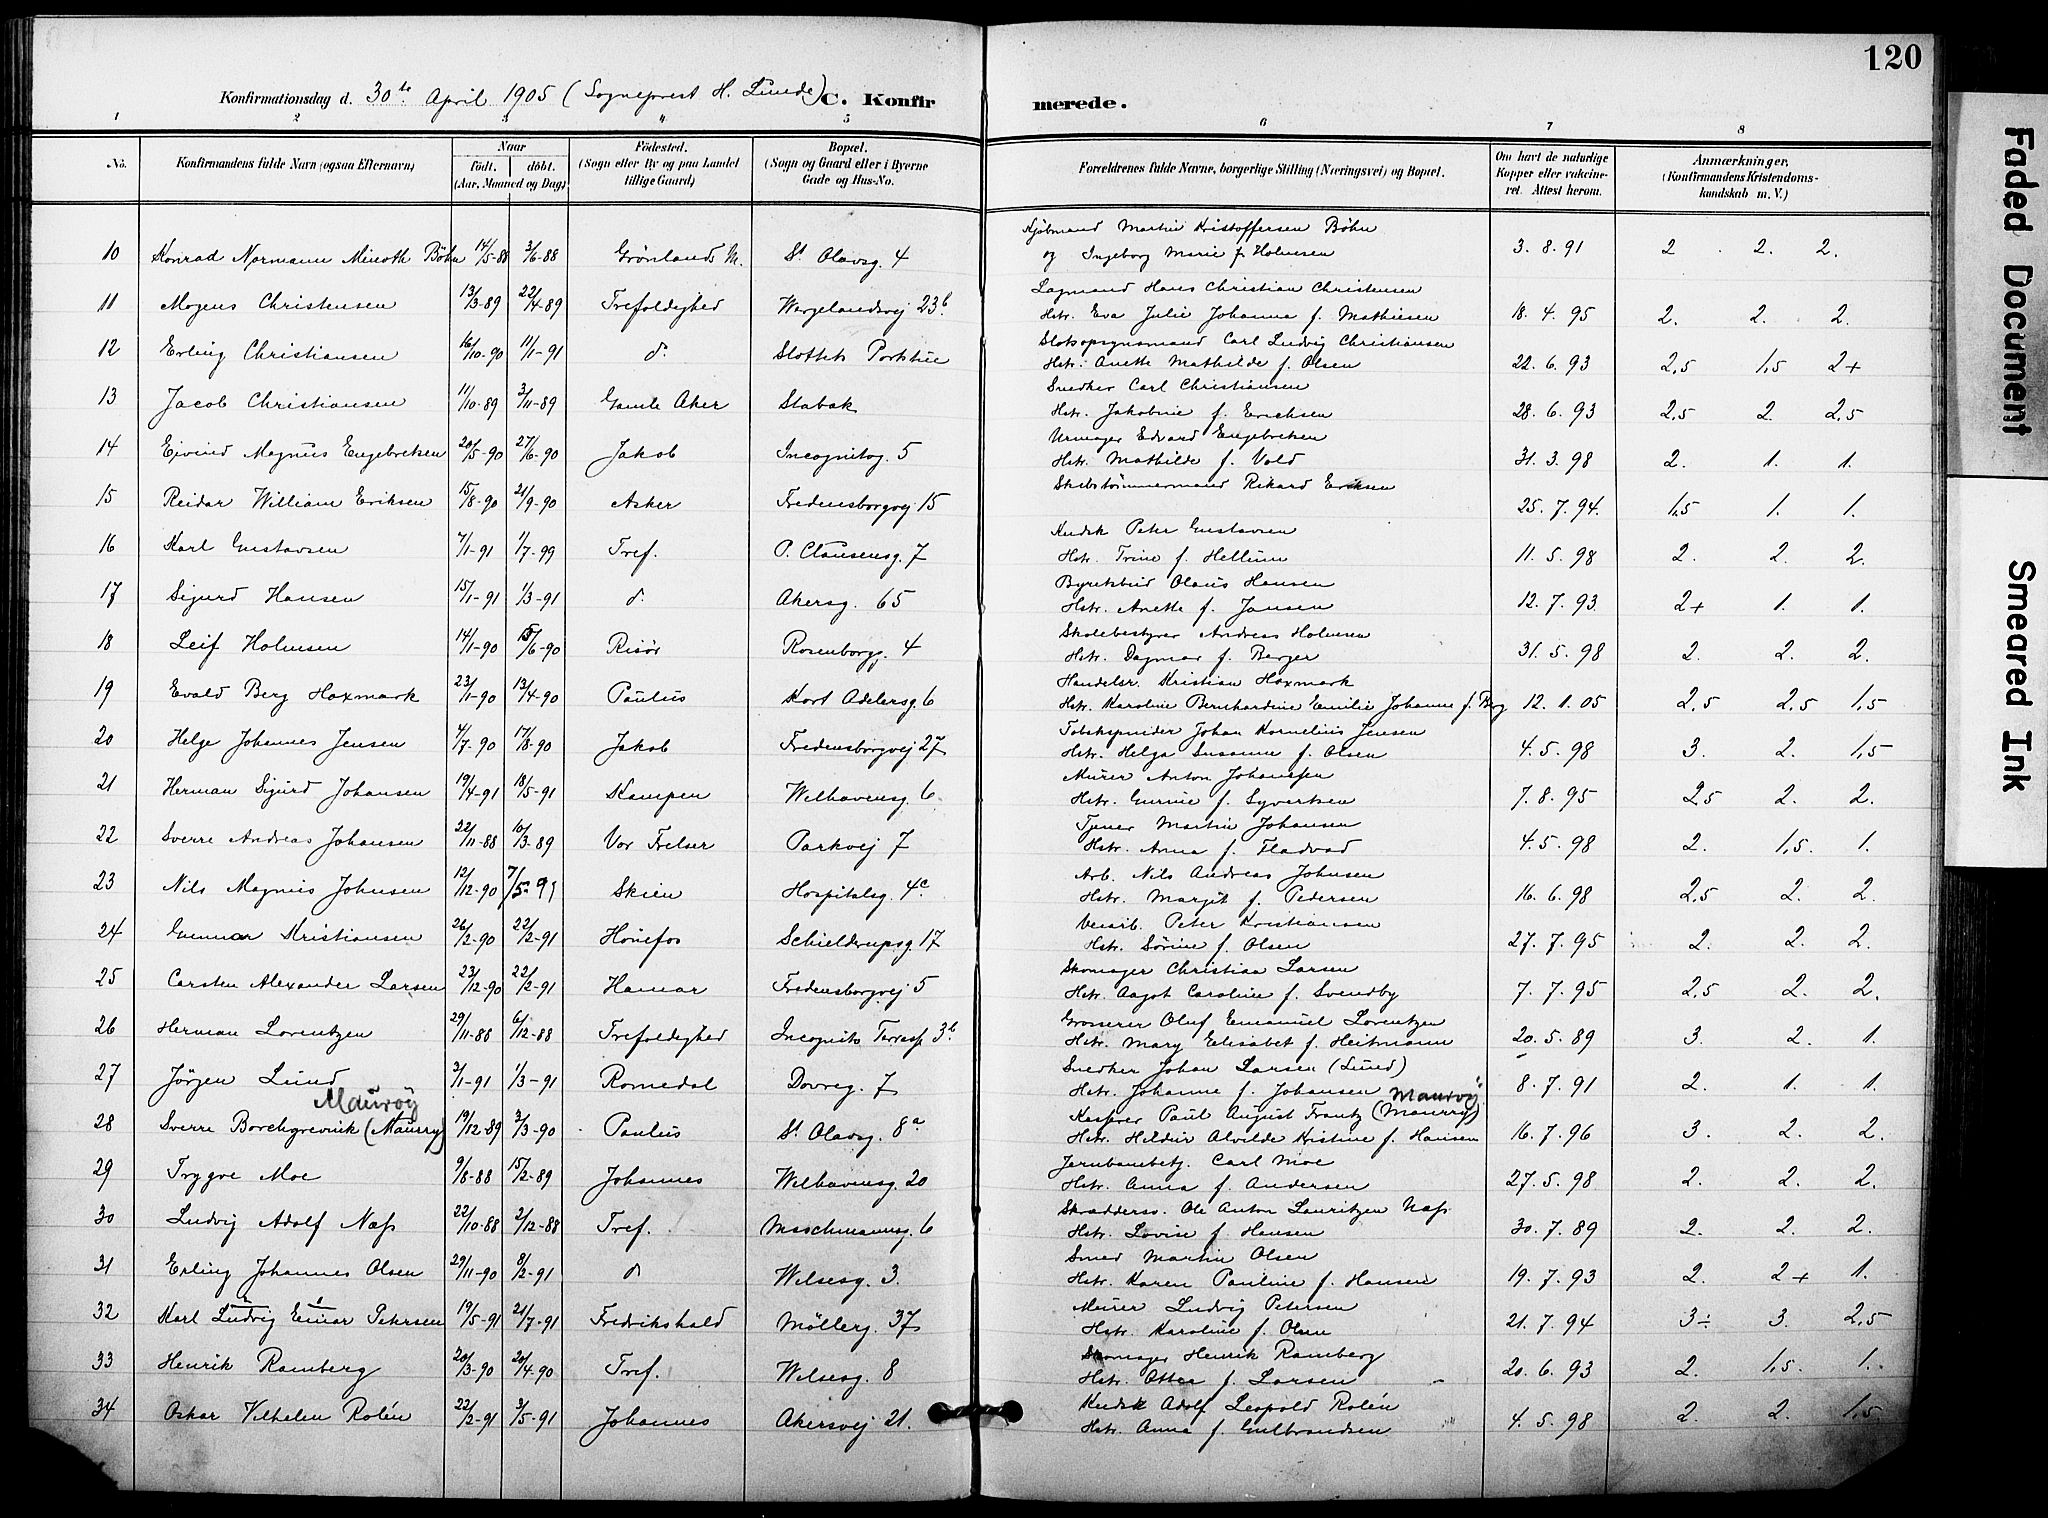 120
Konfirmationsdag d. 30te April 1905 (Sogneprest H. Lunde) C. Konfirmerede.
1 2 3 4 5 6 7 8
No. Konfirmandens fulde Navn (ogsaa Efternavn) Naar födt. döbt. (Aar, Maaned og Dag) Födested. (Sogn eller By og paa Landet tillige Gaard) Bopæl. (Sogn og Gaard eller i Byerne Gade og Hus-No. Forældrenes fulde Navne, borgerlige Stilling (Næringsvei) og Bopæl. Om havt de naturlige Kopper eller vakcineret. Attest herom. Anmærkninger. (Konfirmandens Kristendomskundskab m. V.)
Kjøbmand Martin Kristoffersen Bøhn
10 Konrad Normann Minoth Bøhn 14/5-88 3/6-88 Grønlands M. St Olavsg. 4 og Ingeborg Marie f. Holmesen 3.8.91 2 2. 2.
Lagmand Hans Christian Christensen
11 Mogens Christensen 13/3-89 22/4-89 Trefoldighed Wergelandsvej 23b Hstr. Eva Julie Johanna f. Mathiesen 18.4.95 2. 2. 2.
Slotsopsynsmand Carl Ludvig Christiansen
12 Erling Christiansen 16/10-90 11/1-91 d. Slottets Portstue Hstr. Anette Mathilde f. Olsen 22.6.93 2,5 1,5 2+
Snedker Carl Christiansen
13 Jacob Christiansen 11/10-89 3/11-89 Gamle Aker Stabæk Hstr. Jakobine f. Erichsen 28.6.93 2,5 2. 2,5
Urmager Edvard Engebretsen
14 Ejvind Magnus Engebretsen 20/5-90 27/6-90 Jakob Incognitog. 5 Hstr. Mathilde f. Vold 31.3.98 2. 1. 1.
Skibstømmermand Rikard Eriksen
15 Reidar William Eriksen 15/8-90 21/9-90 Asker Fredensborgvej 15 25.7.94. 1,5 1. 1.
Kudsk Peter Gustavsen
16 Karl Gustavsen 7/1-91 1/7-99 Tref. P. Clausensg. 7 Hstr. Trine f. Hellum 11.5.98 2. 2. 2.
Byretsbud Olaus Hansen
17 Sigurd Hansen 15/1-91 1/3-91 d. Akersg. 65 Hstr. Anette f. Jansen 12.7.93 2+ 1. 1.
Skolebestyrer Andreas Holmsen
18 Leif Holmsen 14/1-90 15/6-90 Risør Rosenborgg. 4 Hstr. Dagmar f. Berger 31.5.98 2. 2. 2.
Handelsr. Kristian Haxmark
19 Evald Berg Haxmark 23/1-90 13/4-90 Paulus Kort Adelersg. 6 Hstr. Karoline Bernhardine Emilie Johanne f. Berg 12.1.05 2,5 2,5 1,5
Tobakspinder Johan Kornelius Jensen
20 Helge Johannes Jensen 4/7-90 17/8-90 Jakob Fredensborgvej 27 Hstr. Helga Susanne f. Olsen 4.5.98 3. 2. 1,5
Murer Anton Johansen
21 Herman Sigurd Johansen 19/4-91 18/5-91 Kampen Welhavensg. 6 Hstr. Gurine f. Syvertsen 7.8.95 2,5 2. 2.
Tjener Martin Johansen
22 Sverre Andreas Johansen 22/11-88 10/3-89 Vor Frelser Parkvej 7 Hstr. Anna f. Fladvad 4.5.98 2. 1,5. 1.
Arb. Nils Andreas Johnsen
23 Nils Magnus Johnsen 12/12-90 7/5-91 Skien Hospitalsg. 4c Hstr. Margit f. Pedersen 16.6.98 2,5 2. 2.
Veiarb. Peter Kristiansen
24 Gunnar Kristiansen 26/2-90 22/2-91 Hønefos Schielderupsg. 17 Hstr. Sørine f. Olsen 27.7.95 2. 2. 2.
Skomager Christian Larsen
25 Carsten Alexander Larsen 23/12-90 22/2-91 Hamar Fredensborgvej 5 Hstr. Aagot Caroline f. Svendby 7.7.95 2,5 2. 2.
Grosserer Oluf Emanuel Lorentzen
26 Herman Lorentzen 29/11-88 6/12-88 Trefoldighed Incognito Terrasse 3b Hstr. Mary Elisabet f. Heitmann 20.5.89 3. 2. 1.
Snedker Johan Larsen (Lund)
27 Jörgen Lund 3/1-91 1/3-91 Romedal Dovreg. 7 Hstr. Johanne f. Johansen 8.7.91 2. 1. 1.
Mauröy Mauröy
Kasserer Paul August Frantz (Maurry)
28 Sverre Borchgrevink (Maurry) 19/12-89 3/3-90 Paulus St Olavsg. 8a Hstr. Hildur Alvilde Kristine f. Hansen 16.7.96 3. 2. 2.
Jernbanebetj. Carl Moe
29 Trygve Moe 9/8-88 15/2-89 Johannes Welhavensg. 20 Hstr. Anna f. Andersen 27.5.98 2. 2. 2.
Skræddersv. Ole Anton Lauritzen Næss
30 Ludvig Adolf Næss 22/10-88 2/12-88 Tref. Maschmannsg. 6 Hstr. Lovise f. Hansen 30.7.89 2. 2. 2.
Smed Martin Olsen
31 Erling Johannes Olsen 29/11-90 8/2-91 d Wilsesg. 3. Hstr. Karen Pauline f. Hansen 19.7.93 2. 2+ 1.
Murer Ludvig Petersen
32 Karl Ludvig Einar Petersen 19/5-91 21/7-91 Fredrikshald Möllerg. 37 Hstr. Karoline f. Olsen 21.7.94 3÷ 3. 2,5
Skomager Henrik Ramberg
33 Henrik Ramberg 20/3-90 20/4-90 Tref. Wilsesg. 8 Hstr. Ottea f. Larsen 20.6.93 2. 1,5. 1.
Kudsk Adolf Leopold Rolén
34 Oskar Vilhelm Rolén 22/2-91 3/5-91 Johannes Akersvej 21. Hstr. Anna f. Gulbrandsen 4.5.98 2. 2. 1,5
Faded Document
Smeared Ink